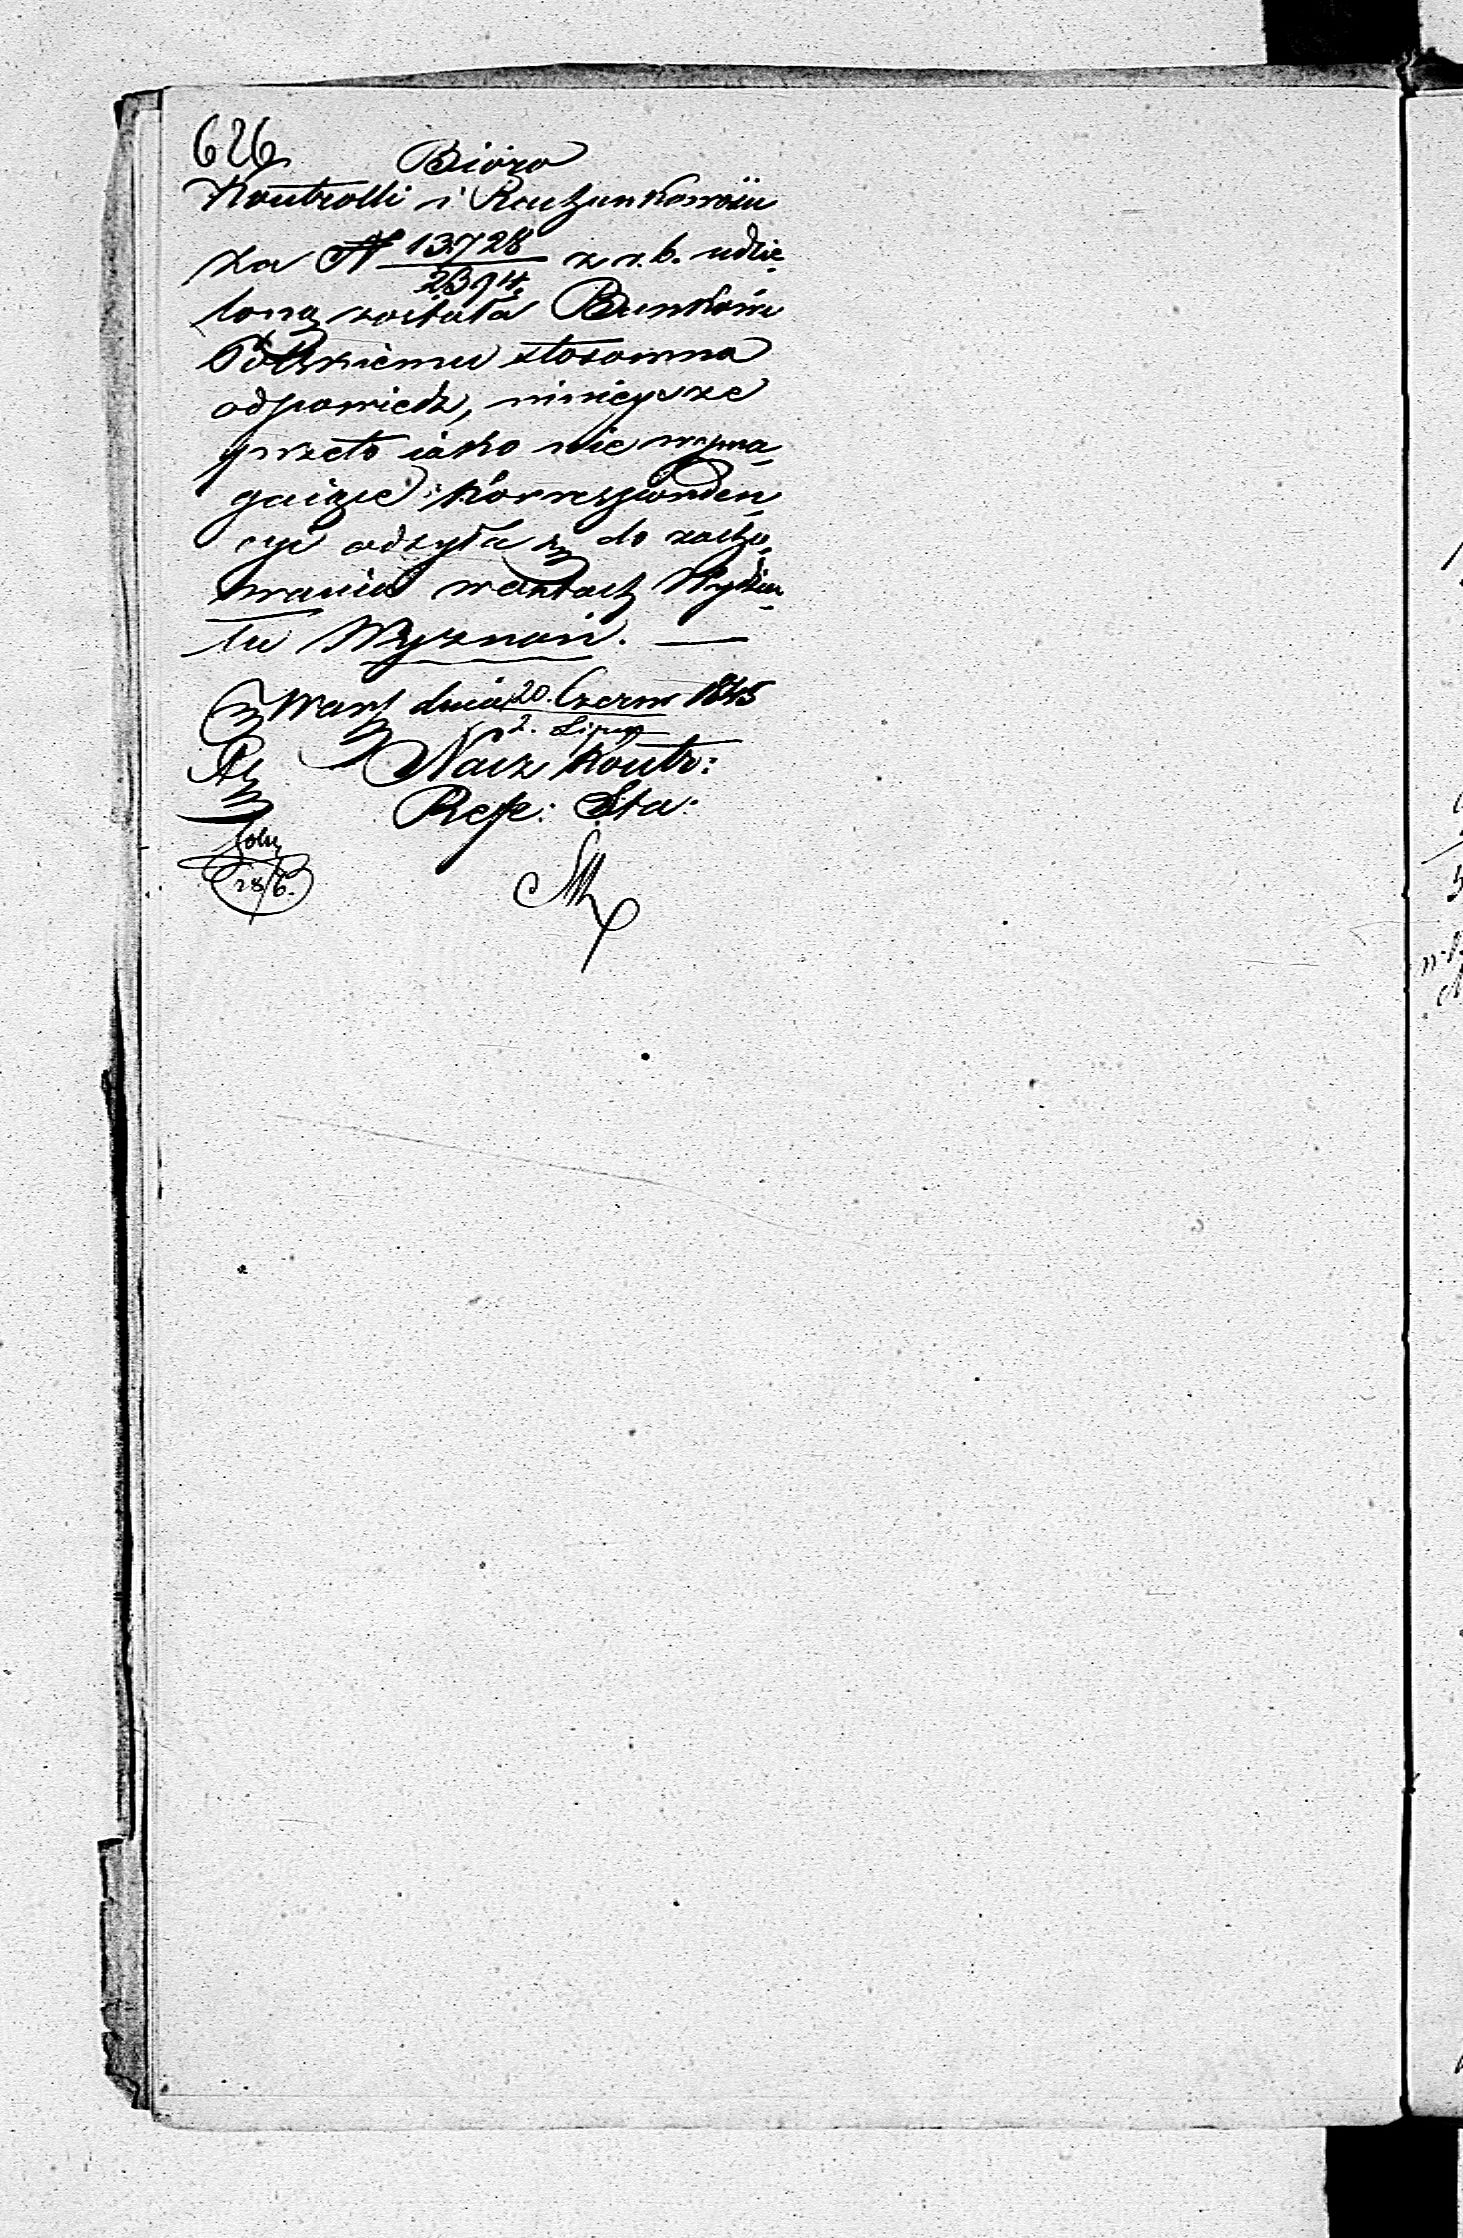 626
Bióro
Kontrolli i Rachunkowośći
za N 13728/2394. z r. b. udzie-
loną została Bankowi
Polskiemu stosowna
odpowiedz, ninieysze
przeto iako nie wyma-
gaiące korresponden-
cyi odsyła się do zacho-
wania w aktach Wydzia-
łu Wyznań. —
Wars dnia 20. Czerw 1845
2. Lipca
Nacz Kontr:
Refe: Sta:
28/6.